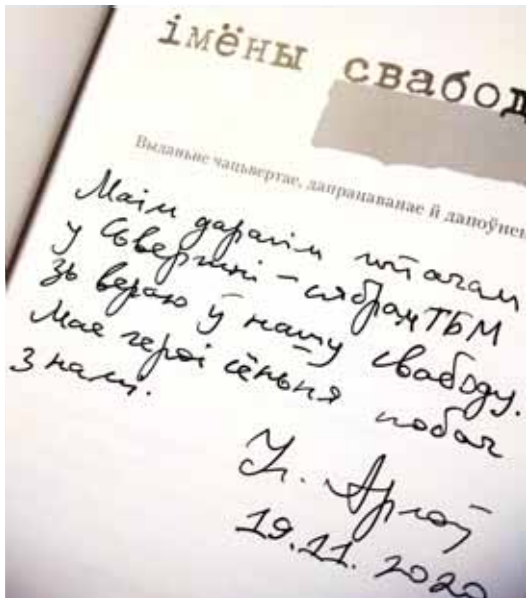 імёны свабод
Выданьне чацьвертае, дапрацаванае й дапоўнен
Маім дарагім чытачам
у – сябрам ТБМ
зь вераю ў нашу свабоду.
Мае героі сёньня побач
з намі.
Ул. Арлоў
19.11.2020